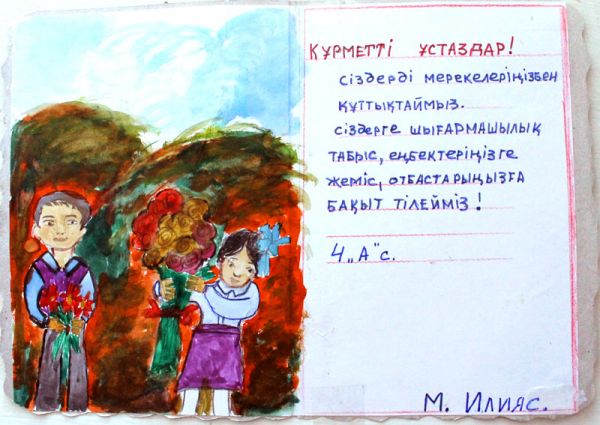 ҚҰРМЕТТІ ҰСТАЗДАР!
сіздерді мерекелеріңізбен
құттықтаймыз.
сіздерге шығармашылық
табыс, еңбектеріңізге
жеміс, отбастарыңызға
бақыт тілейміз!
4 „А" с.
М. Илияс.